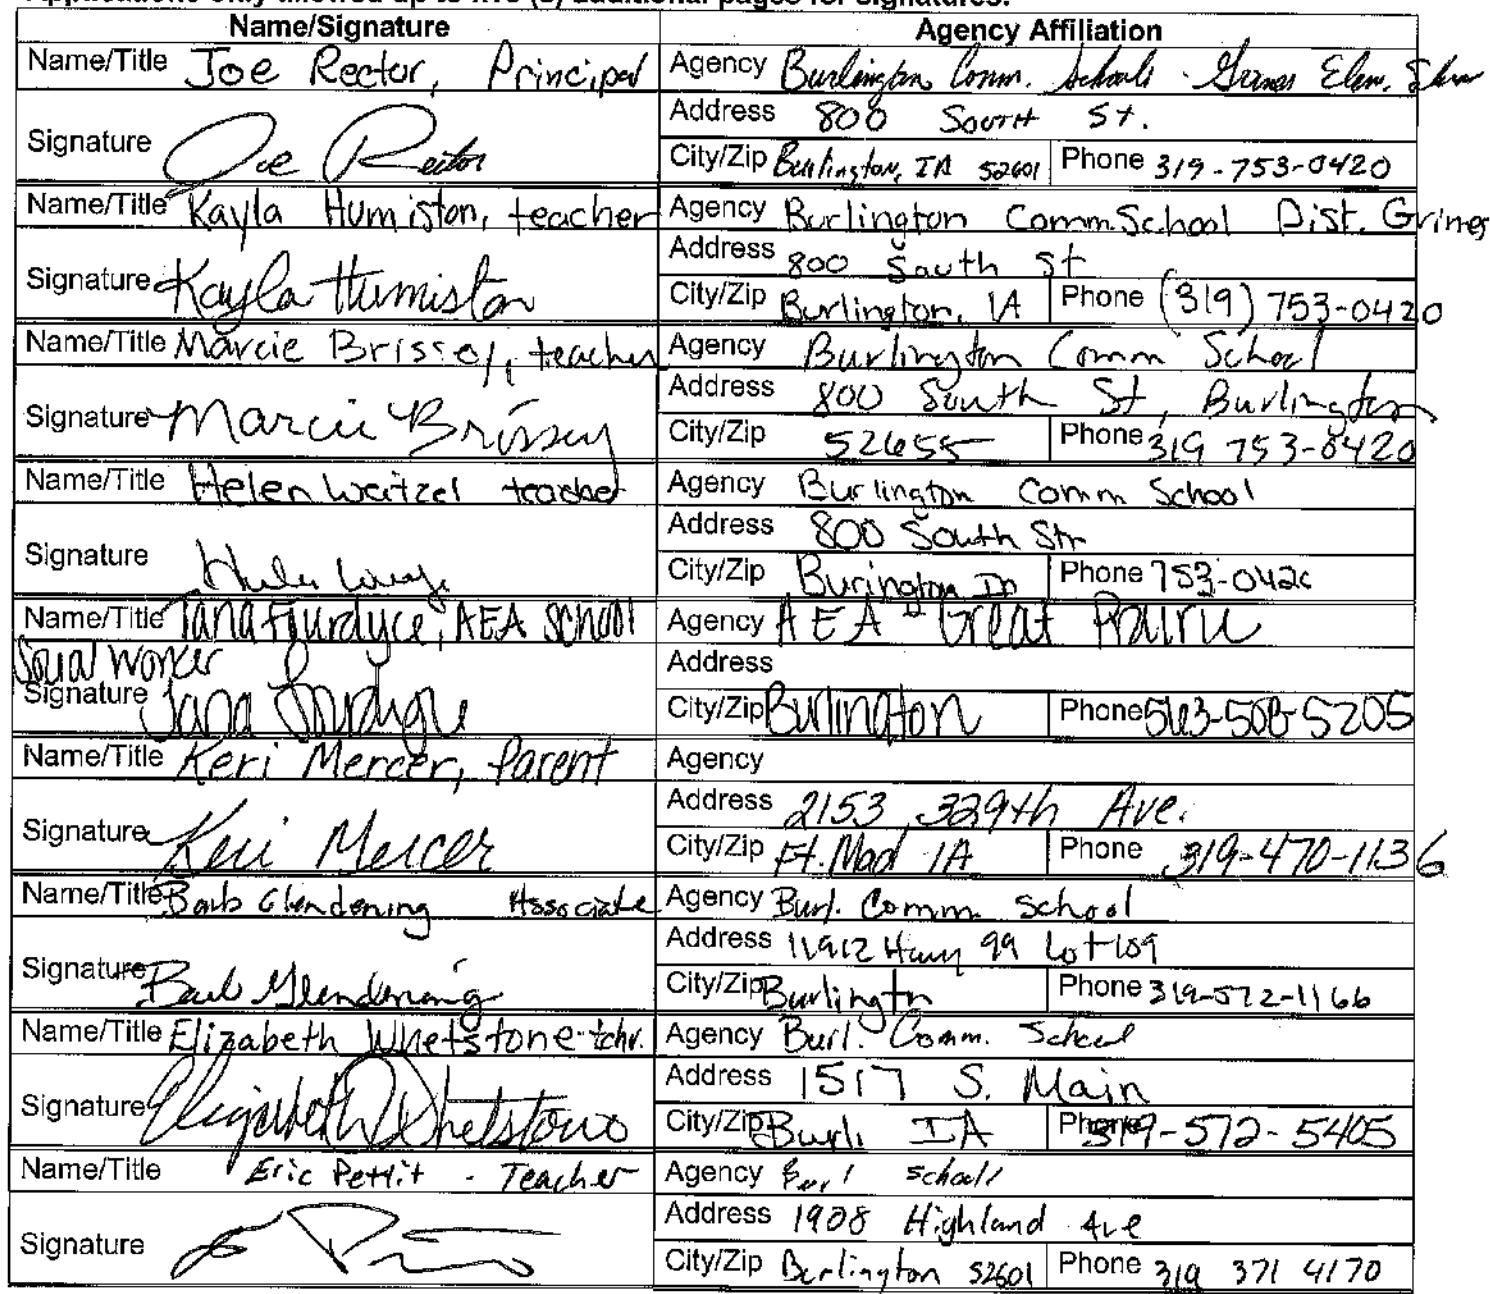 Applications only allowed up to five (5) additional pages for signatures.
Name/Signature Agency Affiliation
Name/Title Joe Rector, Principal Agency Burlington Comm. Schools - Grimes Elem.
Signature Joe Rector Address 800 South St.
City/Zip Burlington, IA 52601 Phone 319-753-0420
Name/Title Kayla Humiston, teacher Agency Burlington Comm.School Dist. Grimes
Signature Kayla Humiston Address 800 South St
City/Zip Burlington, IA Phone (319) 753-0420
Name/Title Marcie Brissey, teacher Agency Burlington Comm School
Signature Marcie Brissey Address 800 South St, Burlington
City/Zip 52655 Phone 319 753-0420
Name/Title Helen Weitzel teacher Agency Burlington Comm School
Signature Address 800 South Str
City/Zip Burington Ia Phone 753-0420
Name/Title Tana Fourdyce, AEA School Agency AEA - Great Prairie
Social Worker Address
Signature Tana Fourdyce City/Zip Burlington Phone 563-508-5205
Name/Title Keri Mercer, Parent Agency
Signature Keri Mercer Address 2153 329th Ave.
City/Zip Ft. Mad IA Phone 319-470-1136
Name/Title Barb Glendening Associate Agency Burl. Comm. School
Signature Barb Glendening Address 11912 Hwy 99 Lot 109
City/Zip Burlingtn Phone 319-572-1166
Name/Title Elizabeth Whetstone-tchr. Agency Burl. Comm. School
Signature Elizabeth Whetstone Address 1517 S. Main
City/Zip Burl. IA Phone 319-572-5405
Name/Title Eric Pettit - Teacher Agency Burl Schools
Signature Address 1908 Highland Ave
City/Zip Burlington 52601 Phone 319 371 4170